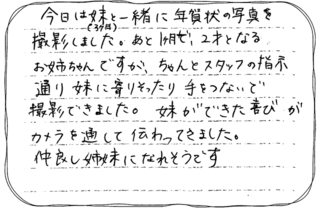 今日は妹と一緒に年賀状の写真を
(3ヶ月)
撮影しました。あと1ヶ月で、2才となる
お姉ちゃんですが、ちゃんとスタッフの指示
通り妹に寄りそったり手をつないで
撮影できました。妹ができた喜びが
カメラを通して伝わってきました。
仲良し姉妹になれそうです